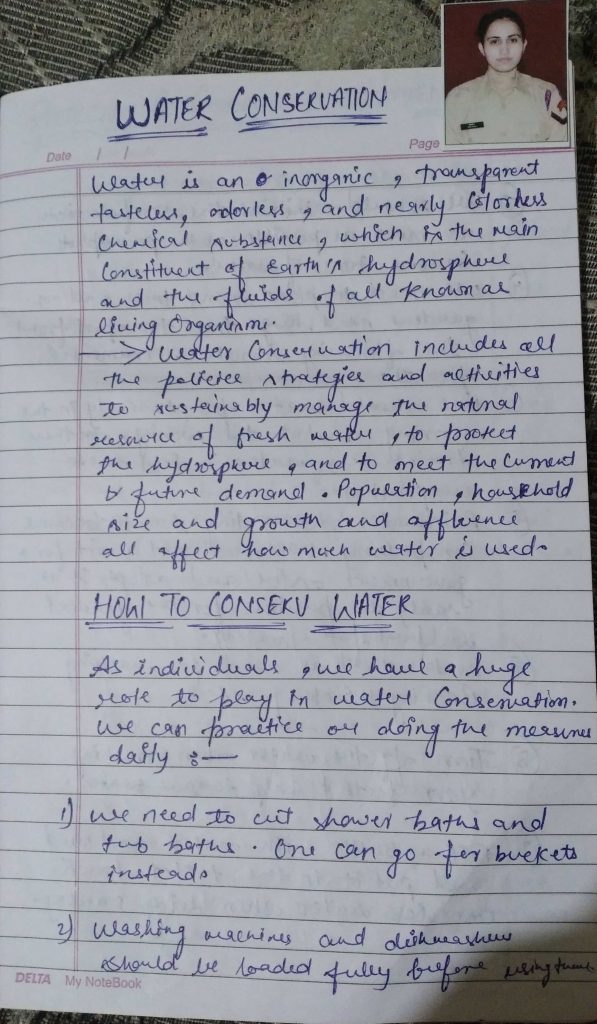 WATER CONSERVATION
Date / /
Page
Water is an inorganic, transparent
tasteless, odorless, and nearly Colorless
Chemical substance, which is the main
Constituent of Earth's hydrosphere
and the fluids of all known as
living Organism.
→ Water Conservation includes all
the policies strategies and activities
to sustainably manage the natural
resource of fresh water, to protect
the hydrosphere, and to meet the Current
& future demand. Population, household
size and growth and affluence
all affect how much water is used.
HOW TO CONSERV WATER
As individuals, we have a huge
role to play in water Conservation.
We can practice or doing the measures
daily :—
1) We need to cut shower baths and
tub baths. One can go for buckets
instead.
2) Washing machines and dishwashers
should be loaded fully before using them.
DELTA My NoteBook